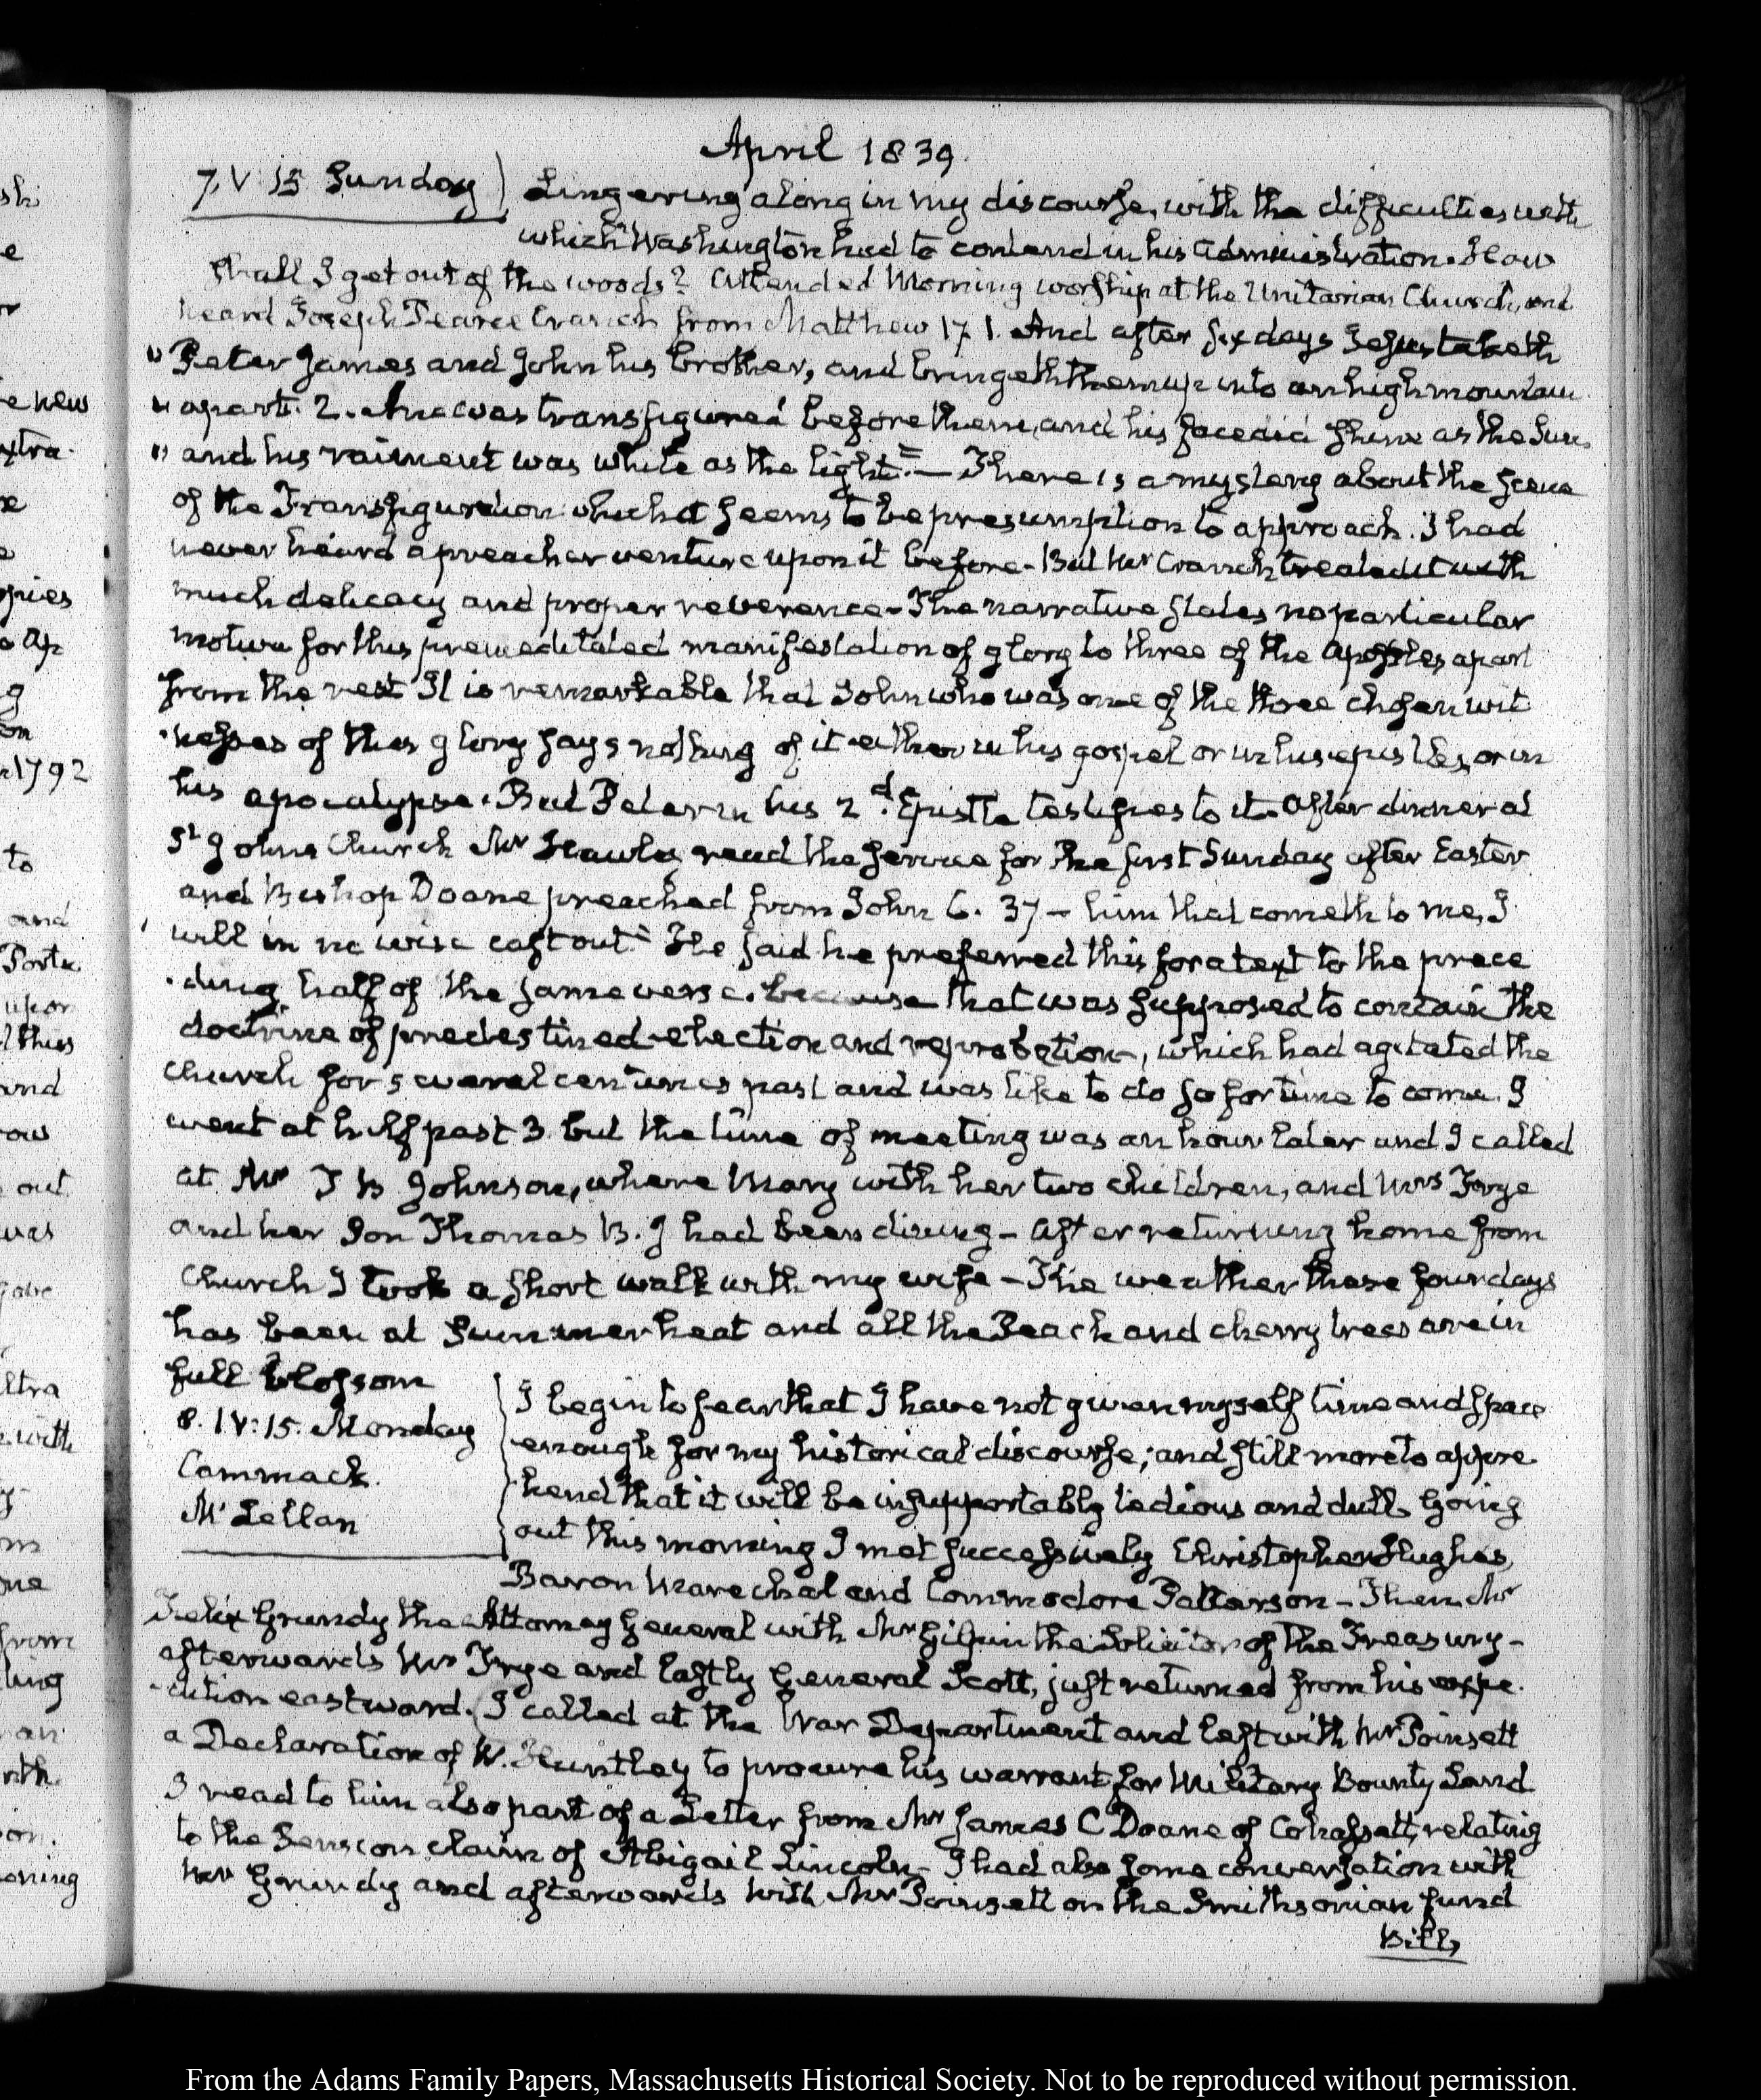 April 1839.
7. V 15 Sunday
Lingering along in my discourse, with the difficulties with
which Washington had to contend in his administration. How
shall I get out of the woods? Attended Morning worship at the Unitarian Church, and
heard Joseph Pearce Cranch from Matthew 17. 1. And after six days Jesus taketh
" Peter James and John his brother, and bringeth them up into an high mountain
" apart. 2. And was transfigured before them, and his face did shine as the Sun,
" and his raiment was white as the light." — There is a mystery about the scene
of the Transfiguration which it seems to be presumption to approach. I had
never heard a preacher venture upon it before. But Mr Cranch treated it with
much delicacy and proper reverence - The narrative states no particular
motive for this premeditated manifestation of glory to three of the Apostles apart
from the rest It is remarkable that John who was one of the three chosen wit
-nesses of this glory says nothing of it either in his gospel or in his epistles, or in
his apocalypse. But Peter in his 2d. Epistle testifies to it. After dinner at
St Johns Church Mr Hawley read the service for the first Sunday after Easter
and Bishop Doane preached from John 6. 37 - him that cometh to me, I
will in no wise cast out." He said he preferred this for a text to the prece
-ding half of the same verse. because that was supposed to contain the
doctrine of predestined election and reprobation, which had agitated the
church for several centuries past and was like to do so for time to come. I
went at half past 3. but the time of meeting was an hour later and I called
at Mr T B Johnson, where Mary with her two children, and Mrs Frye
and her Son Thomas B. J had been dining - After returning home from
Church I took a short walk with my wife - The weather these four days
has been at Summer heat and all the Peach and cherry trees are in
full blossom
8. IV: 15. Monday
Cammack.
McLellan
I begin to fear that I have not given myself time and space
enough for my historical discourse; and still more to appre
-hend that it will be insupportably tedious and dull. Going
out this morning I met successively Christopher Hughes,
Baron Marechal and Commodore Patterson - Then Mr
Felix Grundy the Attorney General with Mr Gilpin the Solicitor of the Treasury -
afterwards Mr Frye and lastly General Scott, just returned from his expe
-dition eastward. I called at the War Department and left with Mr Poinsett
a Declaration of W. Huntley to procure his warrant for Military Bounty Land
I read to him also part of a Letter from Mr James C Doane of Cohassett, relating
to the Pension claim of Abigail Lincoln - I had also some conversation with
Mr Grundy and afterwards with Mr Poinsett on the Smithsonian fund
Bill,
From the Adams Family Papers, Massachusetts Historical Society. Not to be reproduced without permission.